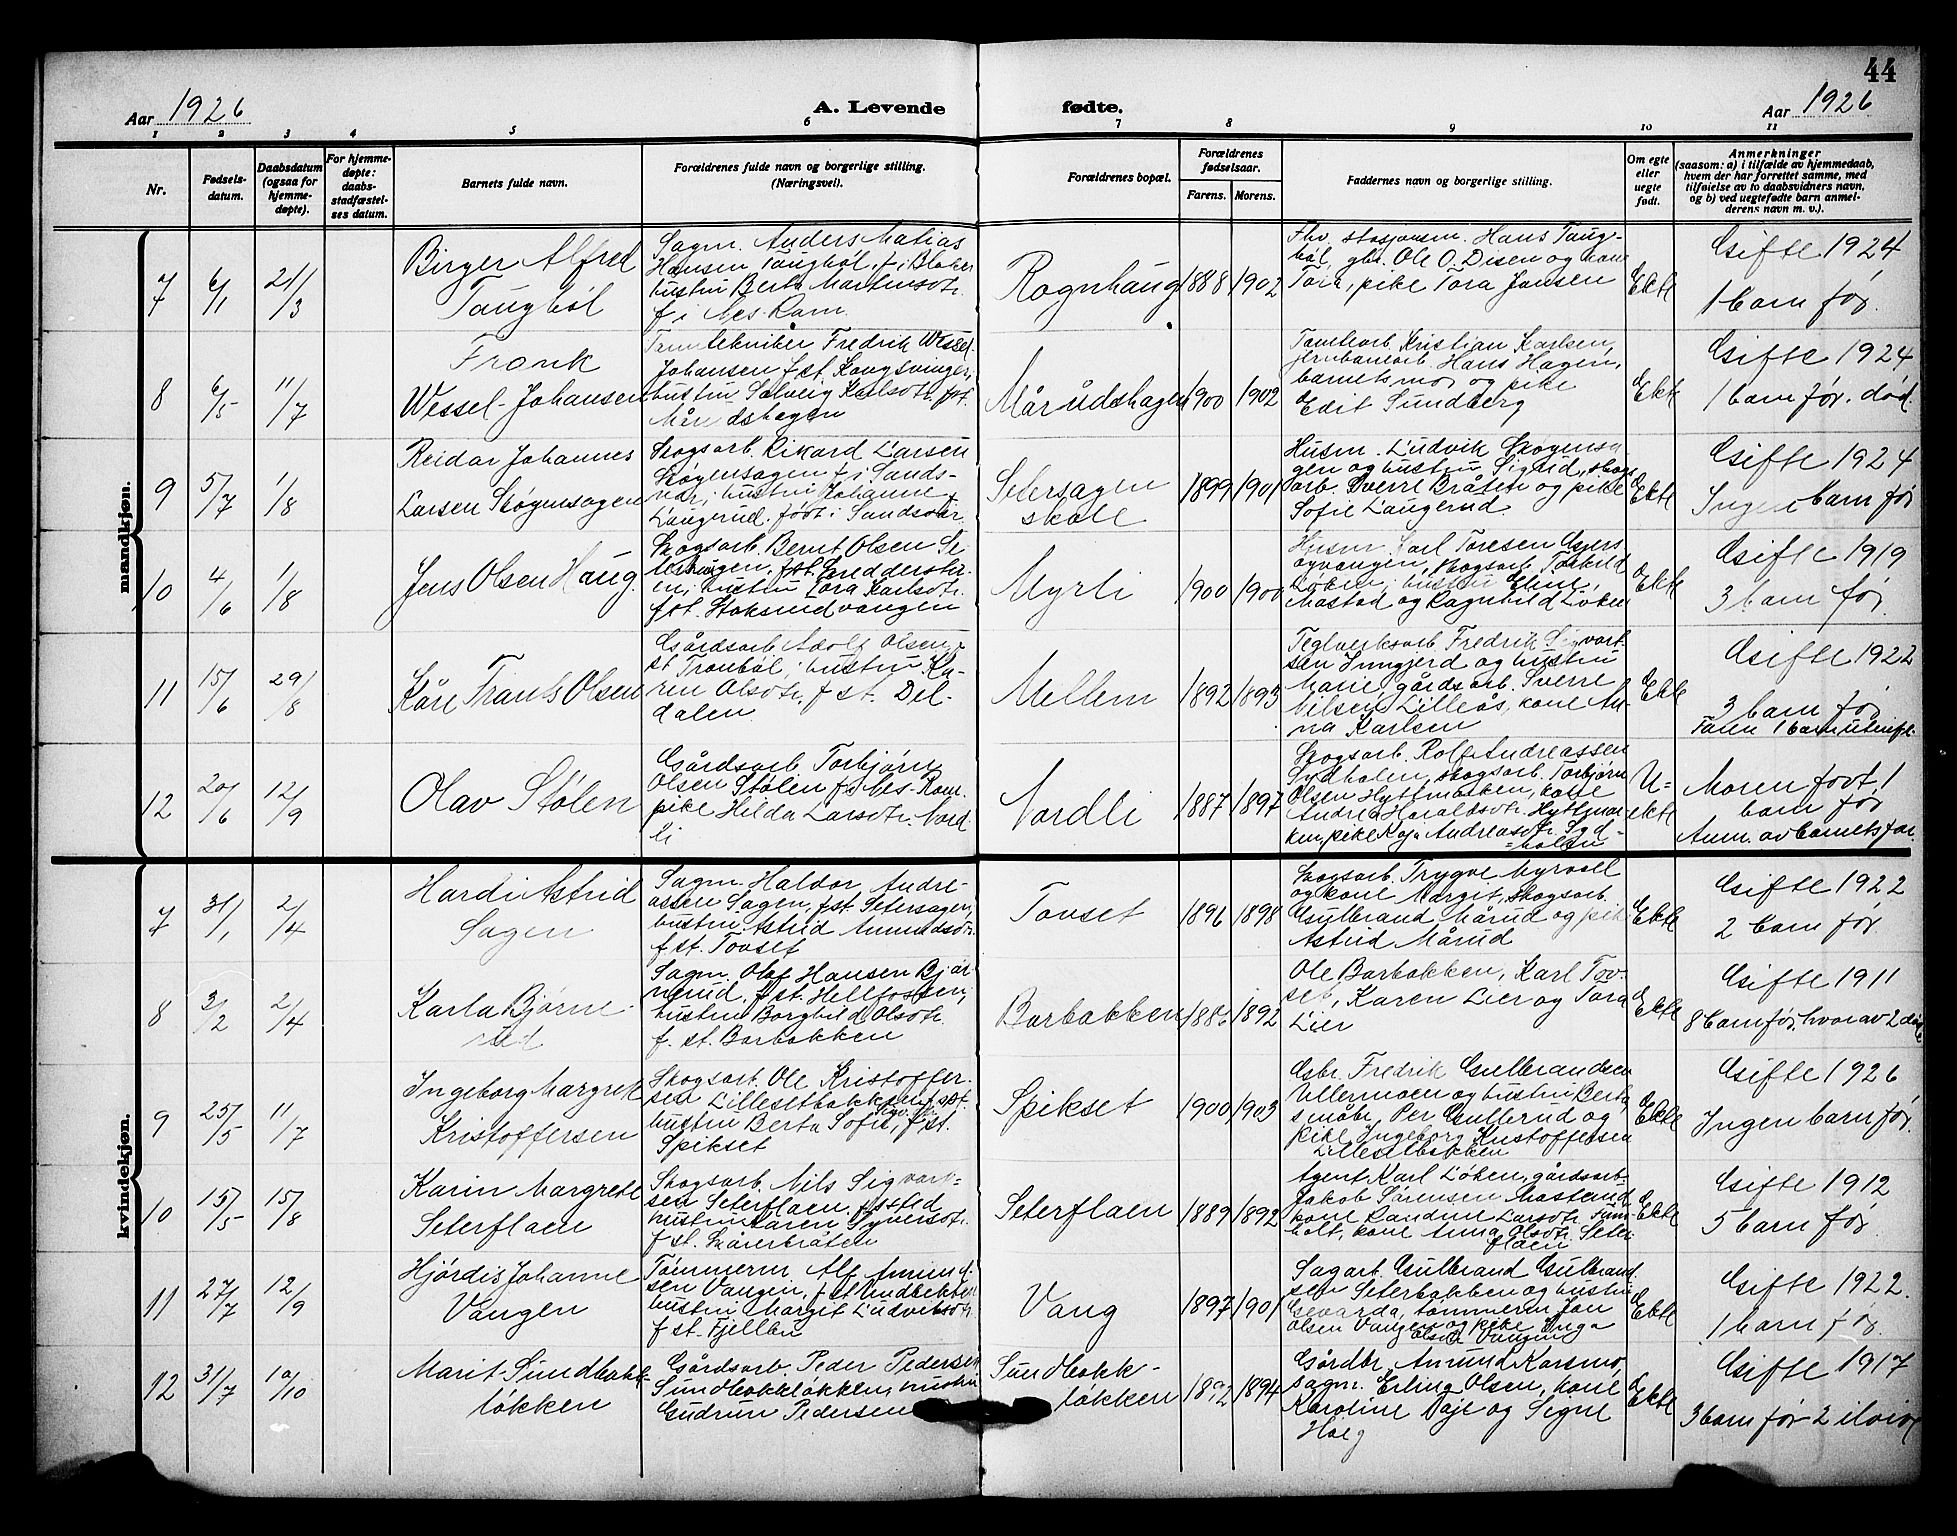 44
Aar 1926
A. Levende fødte.
Aar 1926
1 2 3 4 5 6 7 8 9 10 11
Nr.
Fødsels-
datum.
Daabsdatum
(ogsaa for
hjemme-
døpte).
For hjemme-
døpte:
daabs-
stadfæstel-
ses datum.
Barnets fulde navn.
Forældrenes fulde navn og borgerlige stilling.
(Næringsvei).
Forældrenes bopæl.
Forældrenes
fødselsaar.
Farens. Morens.
Faddernes navn og borgerlige stilling.
Om egte
eller
uegte
født.
Anmerkninger
(saasom: a) i tilfælde av hjemmedaab,
hvem der har forrettet samme, med
tilføielse av to daabsvidners navn,
og b) ved uegtefødte barn anmel-
derens navn m. v.).
mandkjøn.
7
6/1
21/3
Birger Alfred
Taugbøl
Sagm. Anders Matias
Hansen Taugbøl, f. i Blaker
hustru Berta Martinsdtr.
f. i Nes-Rom.
Rognhaug
1888
1902
Fhv. stasjonsm. Hans Taug-
bøl, gbr. Ole O. Disen og kone
Tora, pike Tora Jansen
Ekte
Gifte 1924
1 barn før.
8
6/5
11/7
Frank
Wessel-Johansen
Tanntekniker Fredrik Wessel-
Johansen f. st. Kongsvinger,
hustru Solveig Karlsdtr. f. st.
Mårudshagen
Mårudshagen
1900
1902
Tomtearb. Kristian Karlsen,
jernbanearb. Hans Hagen,
barnets mor og pike
Edit Sundberg
Ekte
Gifte 1924
1 barn før. død.
9
5/7
1/8
Reidar Johannes
Larsen Skøgensagen
Skogsarb. Rikard Larsen
Skøgensagen f. i Sands-
vær, hustru Johanne
Laugerud. født i Sandsvær
Setersagen
skole
1899
1901
Husm. Ludvik Skøgensa
gen og hustru Sigrid, skogs
arb. Sverre Bråten og pike
Sofie Laugerud.
Ekte
Gifte 1924
Ingen barn før
10
4/6
1/8
Jens Olsen Haug.
Skogsarb. Bernt Olsen Se
terhaugen, f. st.
hustru Lora Karlsdtr.
f. st. Stoksrudvangen
Myrli
1900
1900
Husm. Karl Toresen
skogsarb. Torkild
Løken, hustru Eline
Mastad og Ragnhild Løken
Ekte
Gifte 1919
3 barn før.
11
15/6
29/8
Kåre Frants Olsen
Gårdsarb. Adolf Olsen f.
st. Tronbøl, hustru Ka-
ren Olsdtr. f. st. Del-
dalen.
Mellem
1892
1893
Teglverksarb. Fredrik Sigvart-
sen Inngjerd og hustru
Marie, gårdsarb. Sverre
Nilsen Lilleås, kone An-
na Karlsen
Ekte
Gifte 1922
3 barn før
Faren 1 barn utenf.
12
20/6
12/9
Olav Stølen
Gårdsarb. Torbjørn
Olsen Stølen f. i Nes-Rom.
pike Hilda Larsdtr. Nord-
li
Nordli
1887
1897
Skogsarb. Rolf Andreassen
Sydholen, skogsarb. Torbjørn
Olsen Hyttmarken, kone
Andrea Haraldsdtr. Hyttmar-
ken, pike Kaja Andreasdtr. Syd-
holen
U-
ekte
Moren født 1
barn før
Anm. av barnets far.
kvindekjøn.
7
31/1
2/4
Hardi Astrid
Sagen
Sagm. Haldor Andre-
assen Sagen, f. st. Setersagen,
hustru Astrid Amundsdtr.
f. st. Tovset
Tovset
1896
1898
Skogsarb. Trygve Myrvold
og kone Margit, skogsarb.
Gulbrand Mårud og pike
Astrid Mårud
Ekte
Gifte 1922
2 barn før.
8
3/2
2/4
Karla Bjørne
rud
Sagm. Olaf Hansen Bjør
nerud, f. st. Hellfossen,
hustru Borghild Olsdtr.
f. st. Barbakken
Barbakken
1886
1892
Ole Barbakken, Karl Tov-
set, Karen Lier og Tora
Lier
Ekte
Gifte 1911
8 barn før, hvorav 2 døde
9
25/5
11/7
Ingeborg Margrete
Kristoffersen
Skogsarb. Ole Kristoffer-
sen Lillesetbakken f. st.
hustru Berta Sofie, f. st.
Spikset
Spikset
1900
1903
Gbr. Fredrik Gulbrandsen
Ullermoen og hustru Berta,
småbr. Per Gullerud og
pike Ingeborg Kristoffersen
Lillesetbakken
Ekte
Gifte 1926
Ingen barn før.
10
15/5
15/8
Karin Margrete
Seterflaen
Skogsarb. Nils Sigvart-
sen Seterflaen, f. sted
hustru Karen Syversdtr.
f. st. Skårerbråten
Seterflaen
1889
1892
Agent Karl Løken, gårdsarb.
Jakob Sørensen Masterud,
kone Randine Larsdtr. Fure-
holt, kone Anna Olsdtr. Seter
flaen
Ekte
Gifte 1912
5 barn før
11
27/7
12/9
Hjørdis Johanne
Vangen
Tømmerm. Alf Amund-
sen Vangen, f. st. Sundbekken
hustru Margit Ludviksdtr.
f. st. Fjellbu
Vang
1897
1901
Sagarb. Gulbrand Gulbrand
sen Seterbakken og hustru
Gevarda, tømmerm. Jon
Olsen Vangen og pike Inga
Olsen Vangen
Ekte
Gifte 1922.
1 barn før.
12
31/7
10/10
Marit Sundbakk-
løkken
Gårdsarb. Peder Pedersen
Sundbakkløkken, hustru
Gudrun Pedersen
Sundbakk-
løkken
1892
1894
Gårdbr. Amund Karsmo,
sagm. Erling Olsen, kone
Karoline Øaje og Signe
Haug
Ekte
Gifte 1917
3 barn før 2 i live